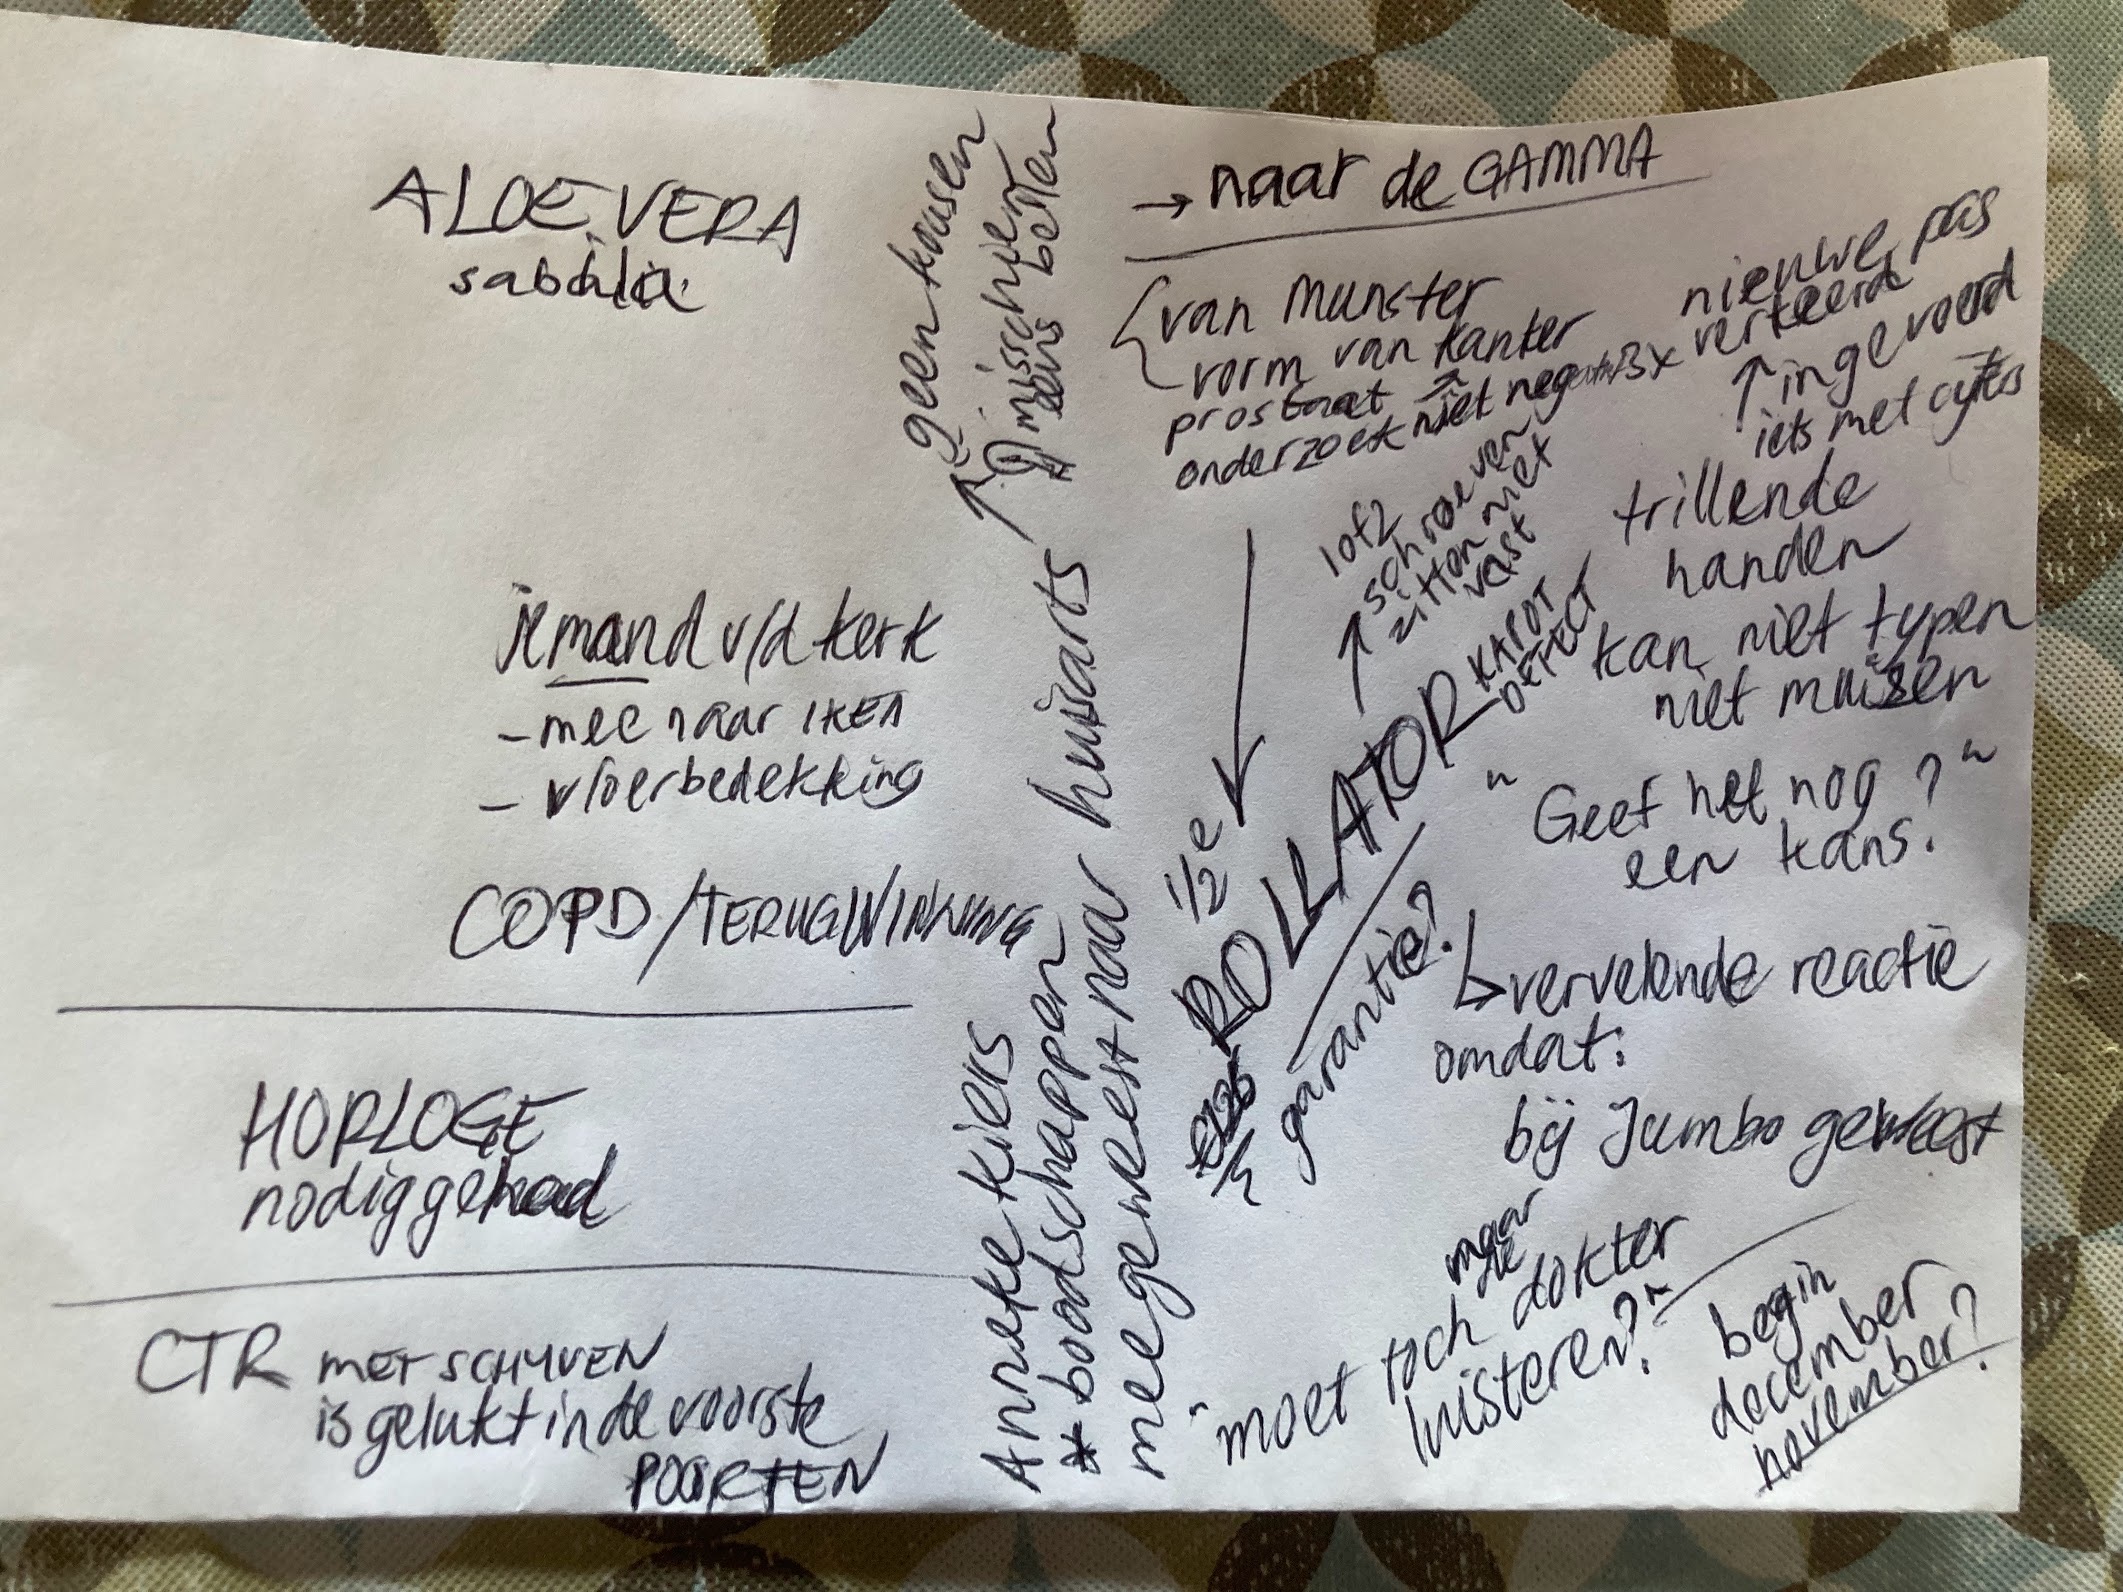 ALOE VERA
iemand v/d kerk
- mee naar IKEA
- vloerbedekking
COPD/TERUGWINNING
HORLOGE
nodig gehad
CTR MET SCHIJVEN
is gelukt in de voorste
POORTEN
geen kousen
misschien
eens bellen
Anneke kiers
* boodschappen
meegeweest naar huisarts
→ naar de GAMMA
van Munster
vorm van kanker
prostaat
onderzoek niet
nieuwe pas
verkeerd
ingevoerd
iets met cijfers
1 of 2
schroeven
zitten niet
vast
1/2 e ROLLATOR KAPOT
DEFECT
garantie?
trillende
handen
kan niet typen
niet muizen
"Geef het nog
een kans?"
vervelende reactie
omdat:
bij Jumbo geweest
maar
"moet toch dokter
luisteren?"
begin
december
november?